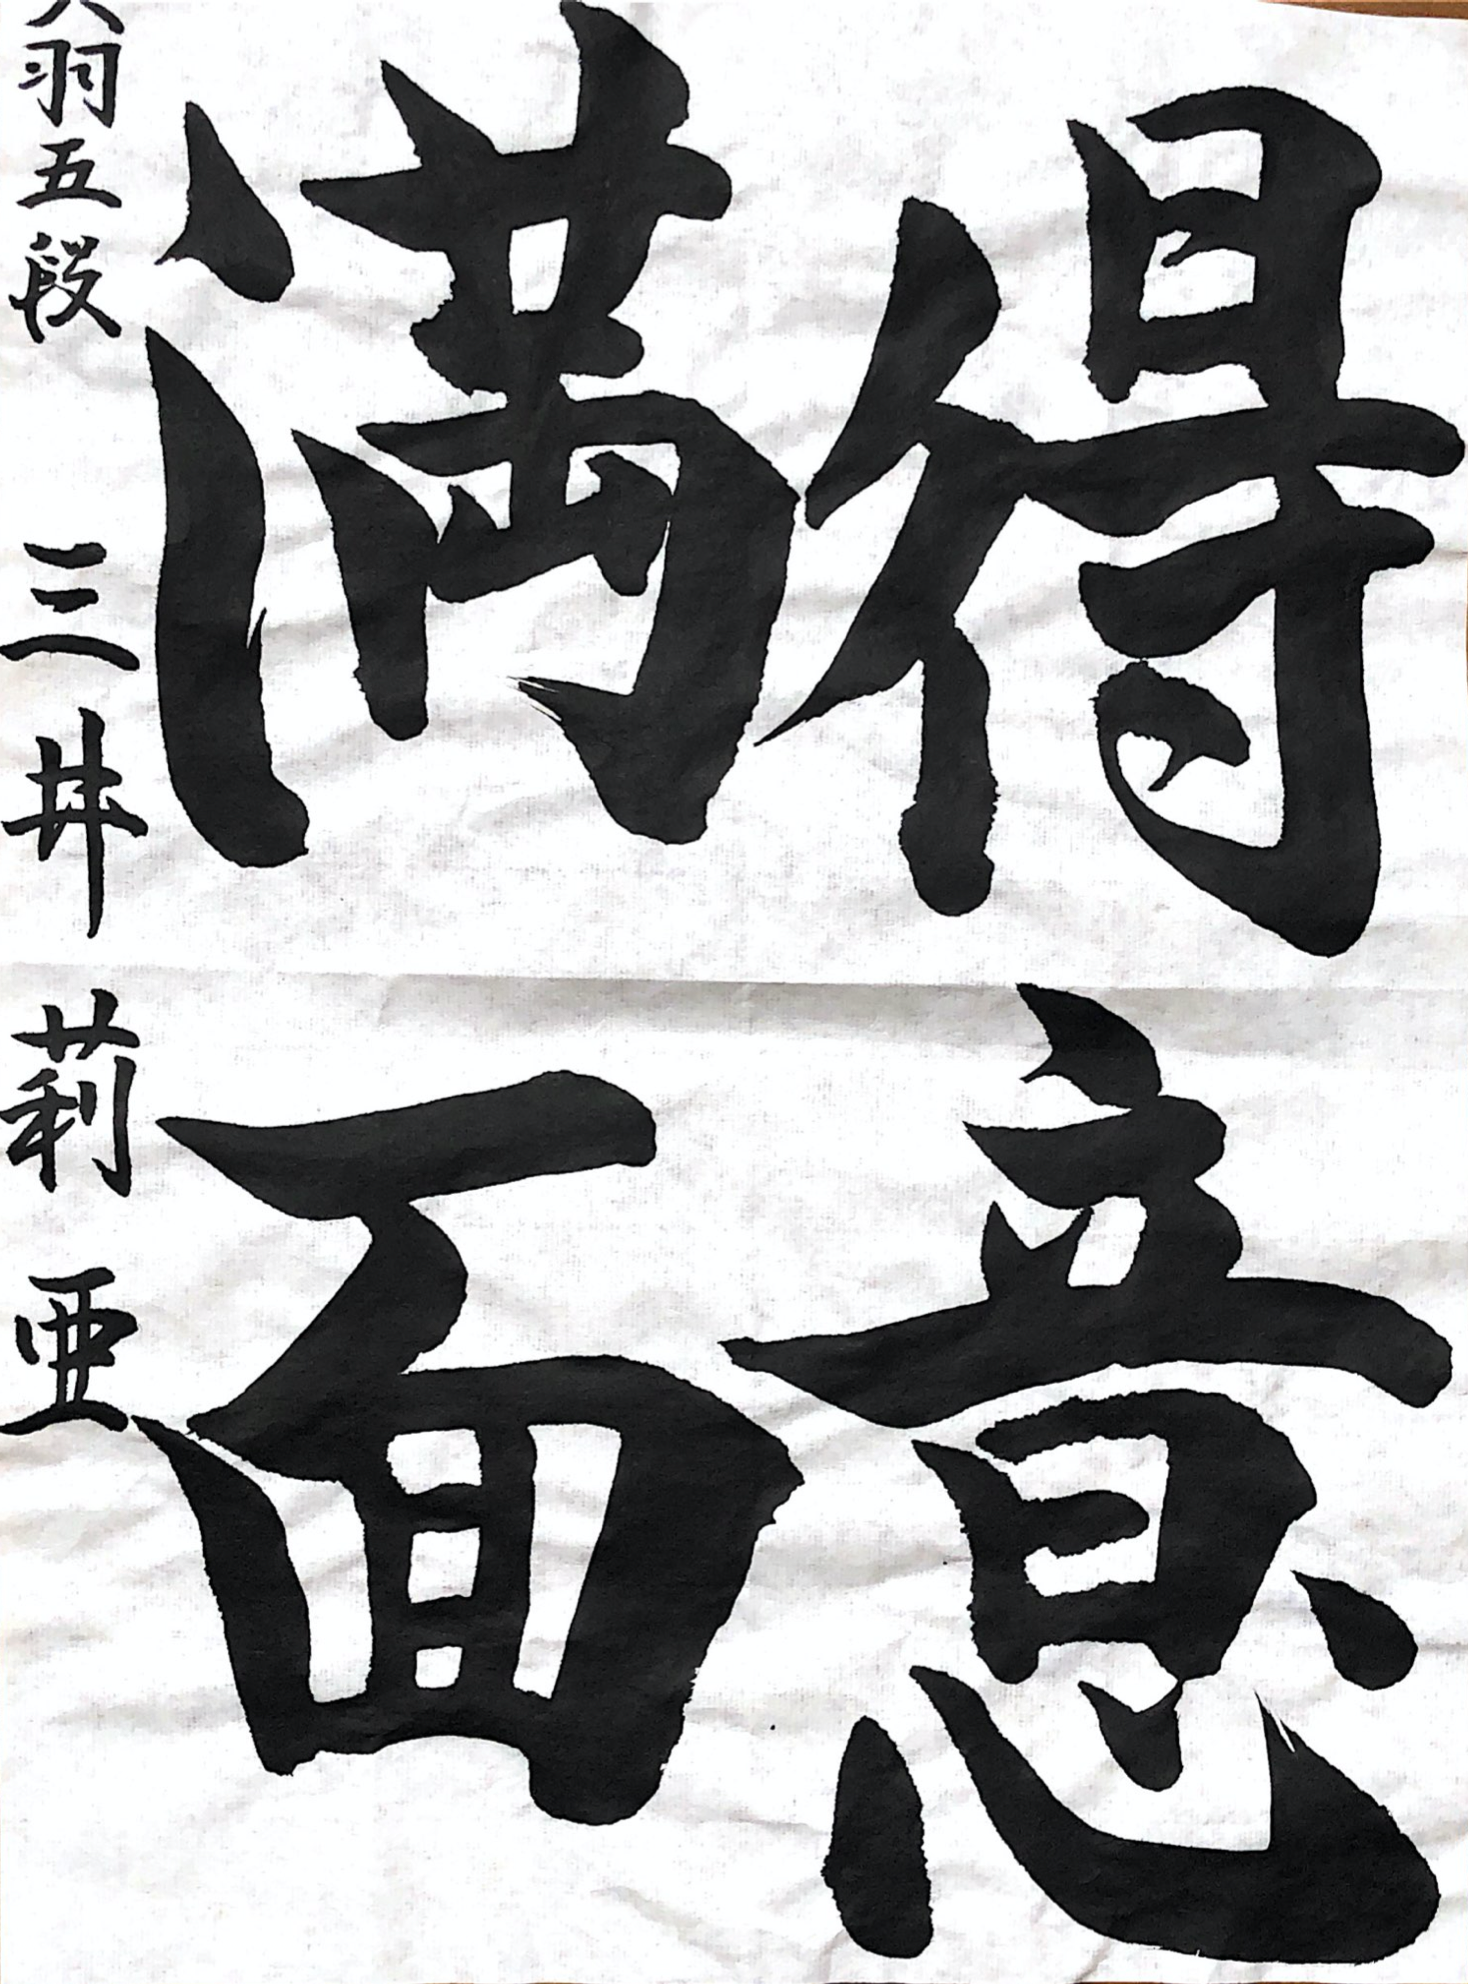 得意
満面
翁五段 三井莉亜